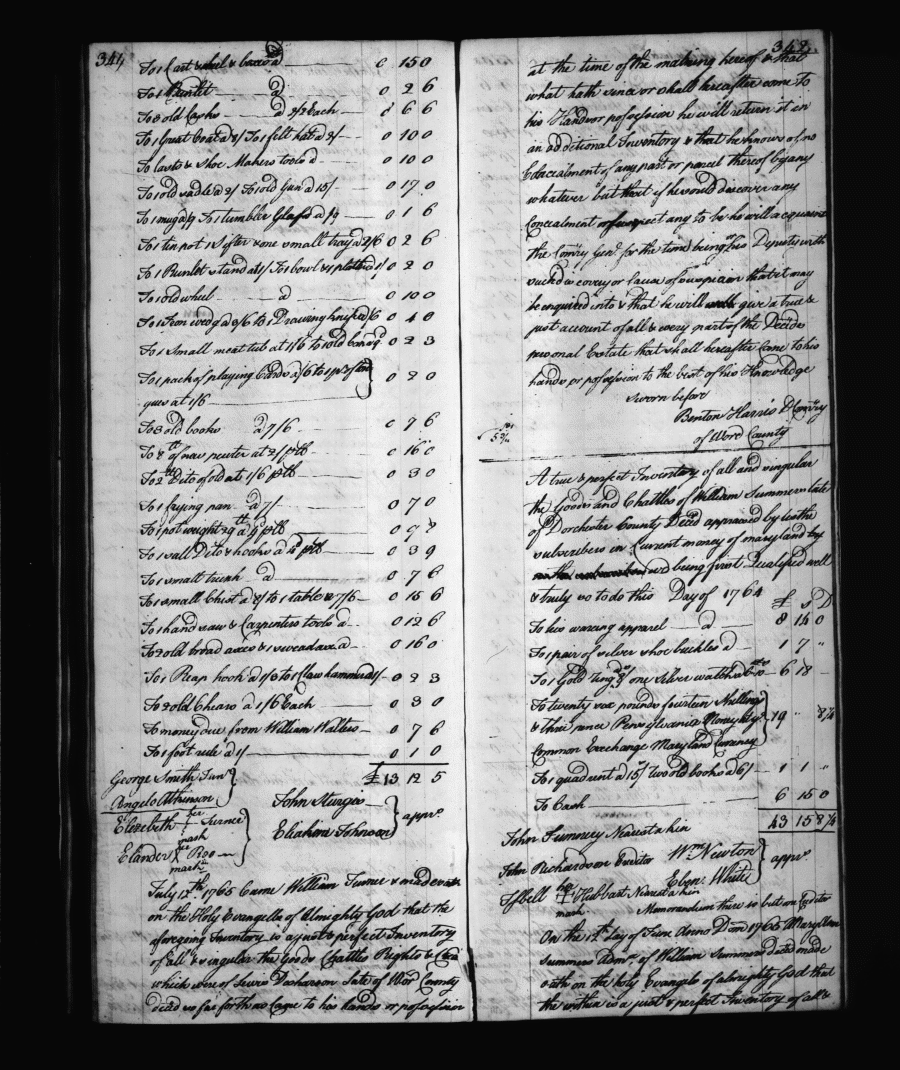 344
To 1 Cart wheel & boxes a 0 15 0
To 1 Runlet a 0 2 6
To 3 old Casks a 2/2 Each 0 6 6
To 1 Great Coat a 8/ To 1 felt hat a 2/ 0 10 0
To lasts & Shoe Makers tools a 0 10 0
To 1 old sadle a 2/ To 1 old Gun a 15/ 0 17 0
To 1 mug To 1 tumbler Glass a 1/9 0 1 6
To 1 tin pot 1 Sifter & one small tray a 2/6 0 2 6
To 1 Runlet stand at 1/ To 1 bowl & 1 plate a 1/ 0 2 0
To 1 old wheel a 0 10 0
To 1 Iron wedg a 2/6 to 1 Drawing knife a 1/6 0 4 0
To 1 Small meat tub at 1/6 to 1 old Can a 9 0 2 3
To 1 pack of playing Cards a /6 to 1 pr of
at 1/6 0 2 0
To 3 old books a 7/6 0 7 6
To 8 lb of new pewter at 2/ p lb 0 16 0
To 2 lb Dito of old at 1/6 p lb 0 3 0
To 1 frying pan a 7/ 0 7 0
To 1 pot weight 29 lb a p lb 0 9
To 1 small Dito & hooks a p lb 0 3 9
To 1 small trunk a 0 7 6
To 1 small Chest a 8/ to 1 table a 7/6 0 15 6
To 1 hand saw & Carpenters tools a 0 12 6
To 2 old broad axes & 1 a 0 16 0
To 1 Reap hook a 1/3 to 1 Claw hammer a 1/ 0 2 3
To 2 old Chears a 1/6 Each 0 3 0
To money due from William Walters 0 7 6
To 1 foot rule a 1/ 0 1 0
£ 13 12 5
George Smith Jun
Angelo Atkinson
John Sturgis
Elizebeth her mark Turner
Eliakim Johnson apprs
Elander her mark
July 12th 1765 Came William Turner & made oath
on the Holy Evangelis of Almighty God that the
aforegoing Inventory is a just & perfect Inventory
of all & singular the Goods Chattles Rights & Cred
which were of late of Wor County
Decd so far forth as Came to his Hands or possession
342
at the time of the making hereof & that
what hath since or shall hereafter come to
his Hands or possession he will return it in
an addetional Inventory & that he knows of no
Concealment of any part or parcel thereof by any
whatever but that if he should discover any
Concealment or suspect any to be he will acquaint
the Comry Genl for the time being or his Deputy with
such discovery or Cause of suspicion that it may
be enquired into & that he will give a true &
just account of all & every part of the Deceds
personal Estate that shall hereafter Come to his
hands or possession to the best of his Knowledge
Sworn before
Benton Harris D Comry
of Word County
A true & perfect Inventory of all and singular
the Goods and Chattles of William Summers late
of Dorchester County Decd appraised by us the
subscribers in Current money of maryland
we being first Quallifyed well
& truly so to do this Day of 1764
£ S D
To his wearing apparel a 8 14 0
To 1 pair of silver shoe buckles a 1 7 "
To 1 Gold Ring & one Silver watch 6 18 "
To twenty six pounds fourteen Shillings
& three pence Pensylvania Money
Common Exchange Maryland Currency 19 " 8 1/4
To 1 quadrent a 15/ Two old books a 6/ 1 1 "
To Cash 6 15 0
43 15 8 1/4
John Sumney Nearest a kin
John Richardson Creditor Wm Newton
Eben. White apprs
her mark Hubbart Nearest a kin
Memorandum there is but one Creditor
On the 12th Day of June Anno Dom 1765
Summers Admx of William Summers Deced made
oath on the holy Evangels of almighty God that
the within is a just & perfect Inventory of all &